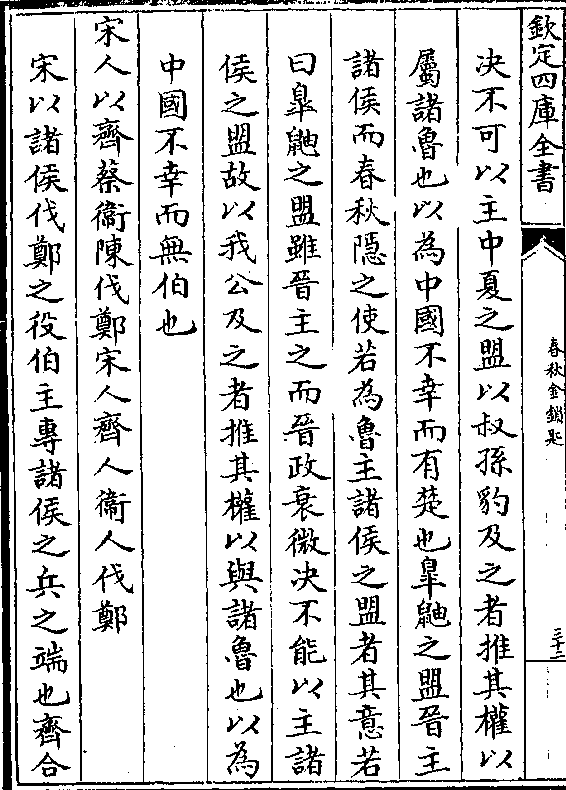 欽定四庫全書
春秋金鎖匙
三十二
决不可以主中夏之盟以叔孫豹及之者推其權以
屬諸魯也以為中國不幸而有楚也臯鼬之盟晉主
諸侯而春秋隱之使若為魯主諸侯之盟者其意若
曰臯鼬之盟雖晉主之而晉政衰微决不能以主諸
侯之盟故以我公及之者推其權以與諸魯也以為
中國不幸而無伯也
宋人以齊蔡衞陳伐鄭宋人齊人衞人伐鄭
宋以諸侯伐鄭之役伯主專諸侯之兵之端也齊合